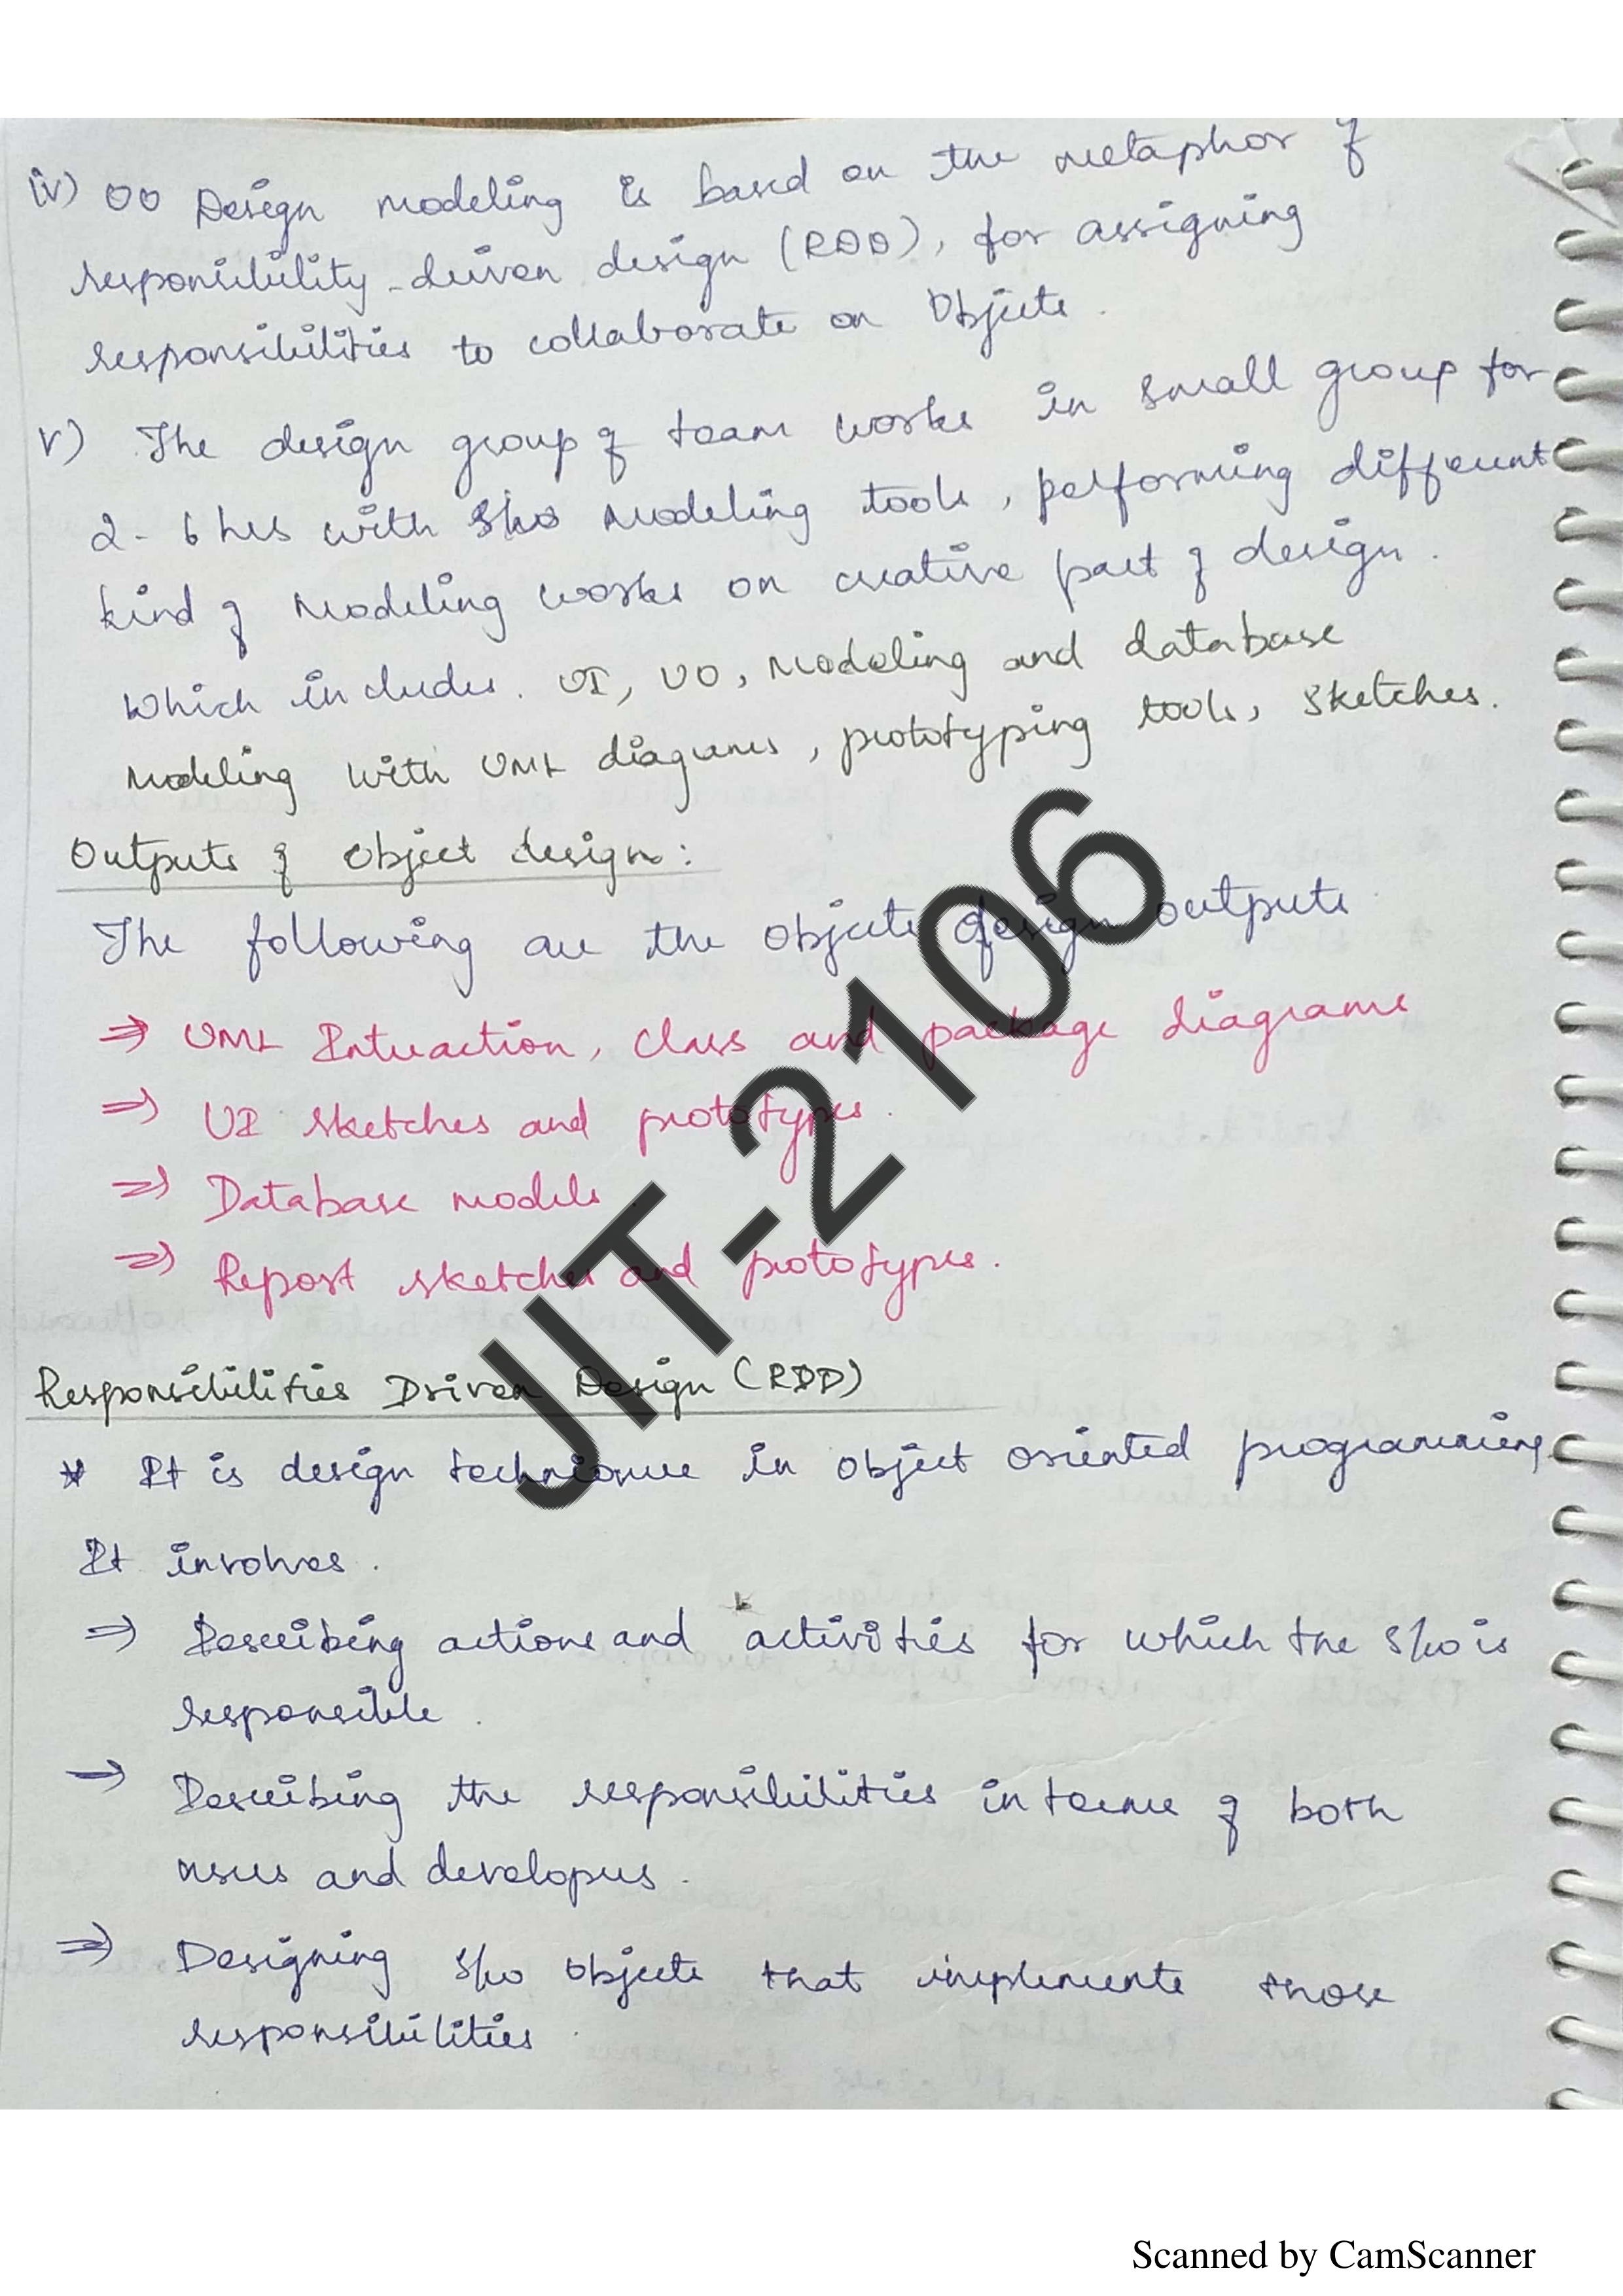 iv) OO Design modeling is based on the metaphor of
responsibility-driven design (RDD), for assigning
responsibilities to collaborate on Objects.
v) The design group of team works in small group for
2-6 hrs with S/w Modeling tools, performing different
kind of Modeling works on creative part of design.
Which includes. UI, OO, Modeling and database
modeling with UML diagrams, prototyping tools, sketches.
Outputs of Object design:
The following are the objects design outputs
⇒ UML Interaction, class and package diagrams
⇒ UI sketches and prototypes.
⇒ Database models.
⇒ Report sketches and prototypes.
Responsibilities Driven Design (RDD)
* It is design technique in object oriented programming
It involves.
⇒ Describing actions and activities for which the S/w is
responsible.
→ Describing the responsibilities in terms of both
users and developers.
⇒ Designing S/w objects that implements those
responsibilities
JIT-2106
Scanned by CamScanner